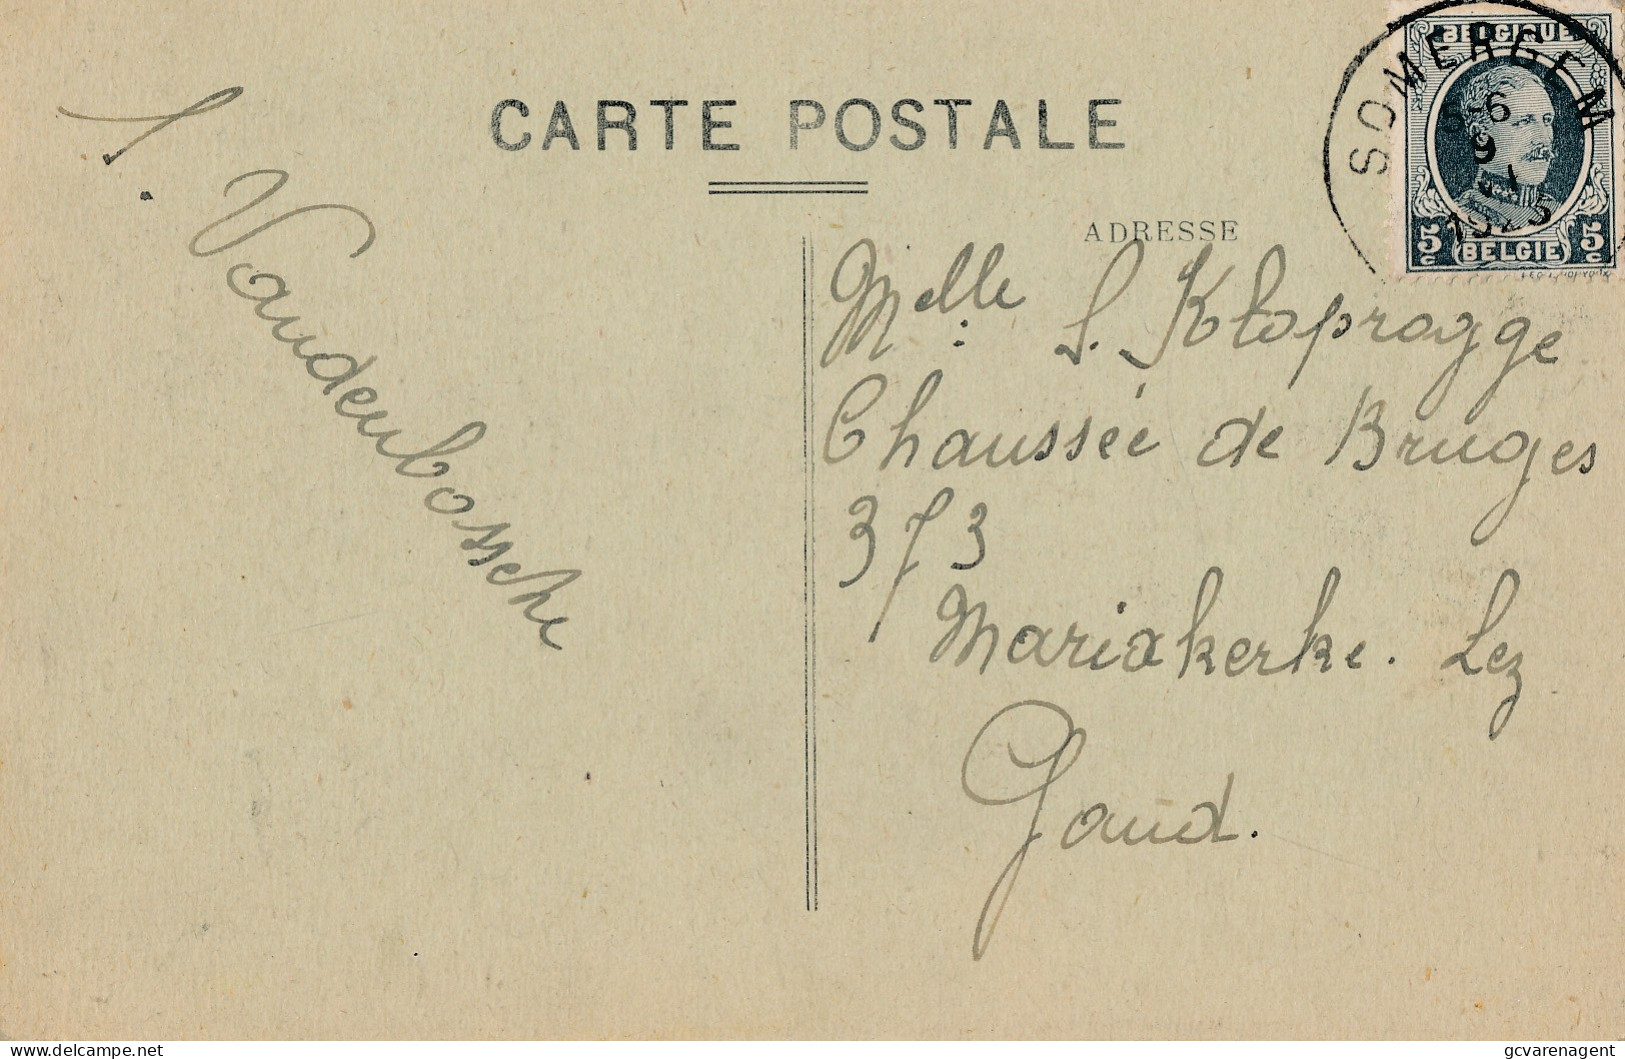 CARTE POSTALE
ADRESSE
Vandenbossche
Melle S. Klaprogge
Chaussée de Bruges
373
Mariakerke. Lez
Gand.
SOMERGEM
6
9
BELGIQUE
5c BELGIE 5c
delcampe.net
gcvarenagent